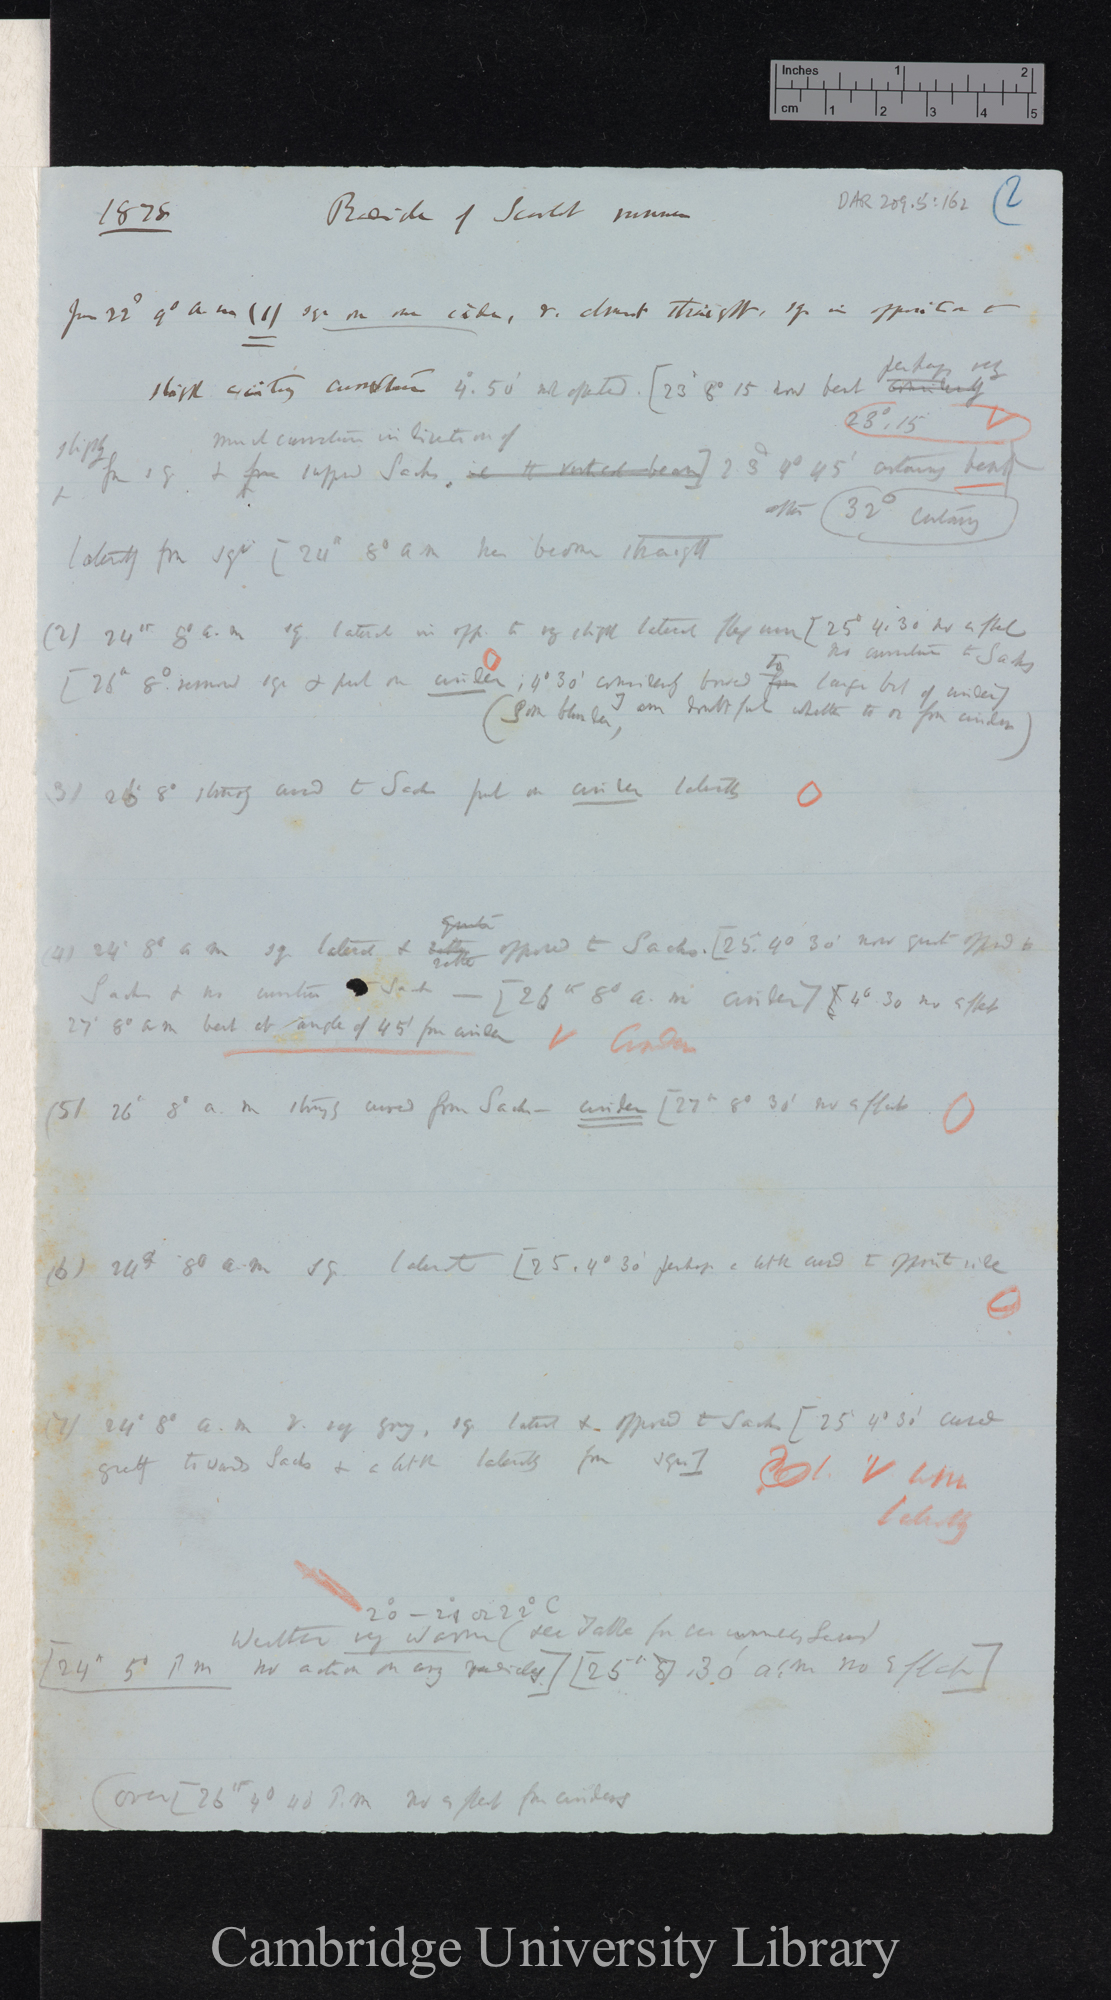 Inches 1 2
cm 1 2 3 4 5
1878 Radicle of Scarlet runner
DAR 209.5:162 (2
Jun 22° 9° a.m (1) sqr on one side, r. almost straight, sqr in opposition to
slight existing curvature 4°.50' not affected. [23 8° 15 now bent considerably
perhaps very
23°.15 V
slightly much curvature in direction of
from sq & from supposed Sachs, 23 4° 45' certainly bent
after (32° certainly)
laterally from sqr [24th 8° a m has become straight
(2) 24th 8° a.m sq lateral in opp. to very slight lateral flexure [25° 4.30 no effect
no curvature to Sachs
[26th 8° removed sqr & put on cinder; 4° 30' considerably bowed from to large bit of cinder]
(Some blunder, I am doubtful whether to or from cinder)
(3) 26 8° strongly curved to Sachs put on cinder laterally O
(4) 24 8° a m sq lateral & rather opposed to Sachs. [25. 4° 30' now quite opposed to
Sachs & no curvature to Sachs — [26th 8° a.m cinder] [4° 30 no effect
27' 8° a m bent at angle of 45° from cinder V Cinder
(5) 26th 8° a.m strongly curved from Sachs — cinder [27th 8° 30' no effect O
(6) 24th 8° a.m sq lateral [25. 4° 30' perhaps a little curved to opposite side
O
(7) 24° 8° a.m r. very young, sq lateral & opposed to Sachs [25 4° 30' curved
greatly towards Sachs & a little laterally from sqr]
V
laterally
20° – 21 or 22° C
Weather very warm (see Table for
[24th 5° P m no action on any radicles] [25th 8°.30' a.m no effect]
(over [26th 4° 40 P.m no effect from cinders
Cambridge University Library